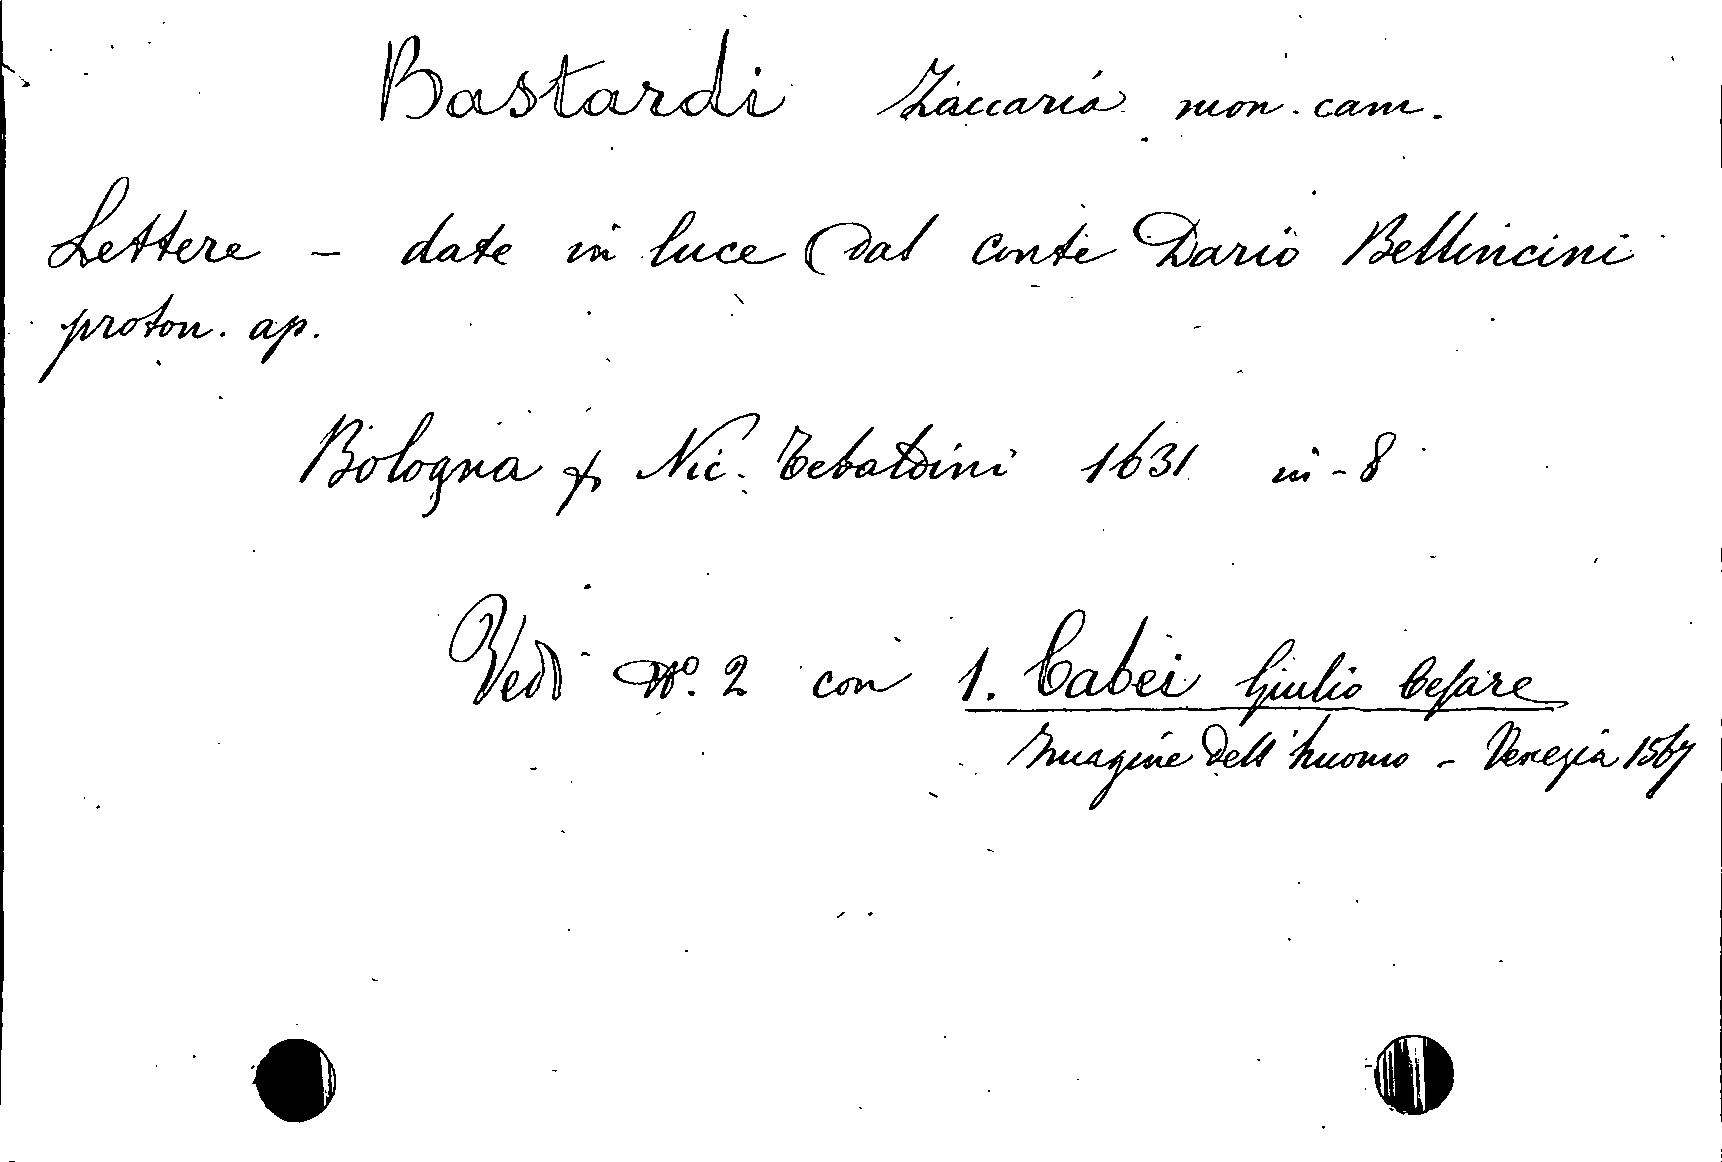 Bastardi Zaccaria mon. cam.
Lettere - date in luce dal conte Dario Bellincini
proton. ap.
Bologna p. Nic. Tebaldini 1631 in-8
Vedi N.º 2 con 1. Cabei Giulio Cesare
Imagine dell'huomo - Venezia 1567